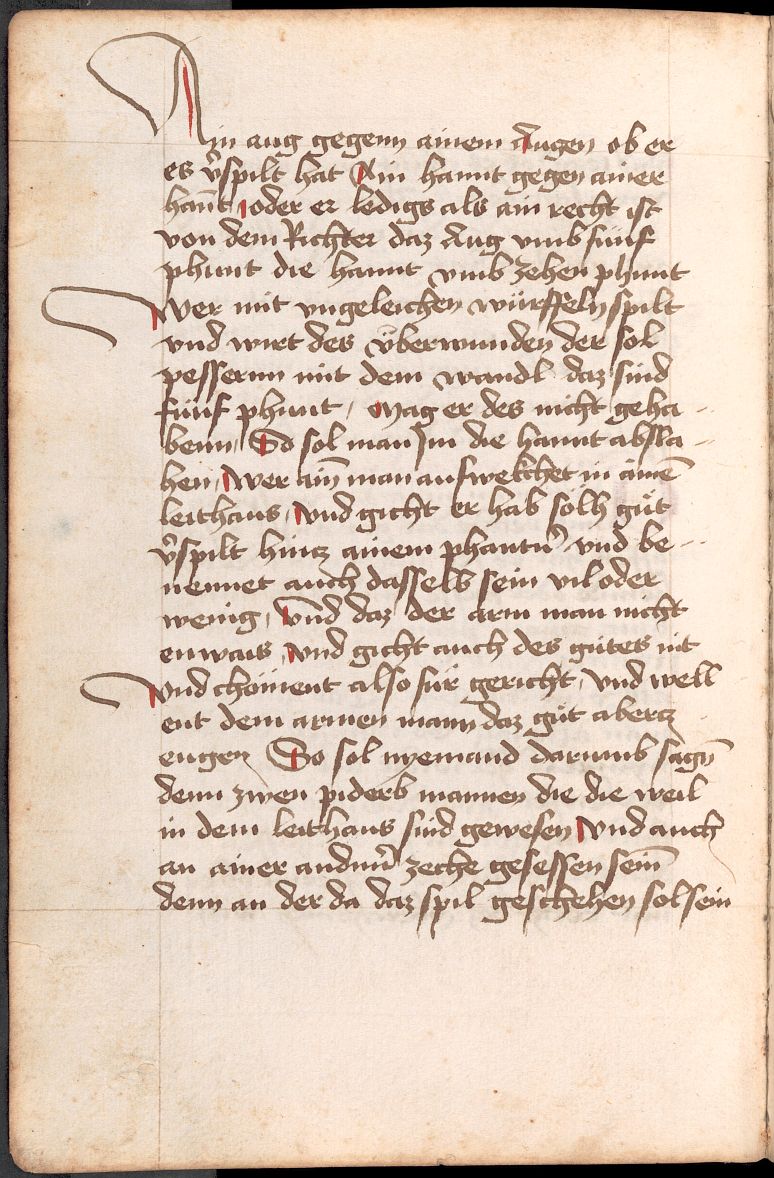 Ain aug gegenn ainem Augen ob er
es v̄spilt hat Ain hannt gegen ainer
hañt oder er ledigs als ain recht ist
von dem Richter daz Aug vmb fünf
phunt die hannt vmb zehen phunt
Wer mit vngeleichen würffeln spilt
vnd wirt des vberwunden der sol
pessernn mit dem wandl daz sind
fünf phunt, Mag er des nicht geha-
benn, So sol man Im die hannt absla-
hen, Wer ain̄ man aufwekchet in ainē
leithaus, Vnd gicht er hab solh gůt
v̄spilt hincz ainem phantn̄ vnd be-
nennet auch dasselb sein vil oder
wenig, Vnd daz der arm man nicht
enwais, Vnd gicht auch des gůtes nit
Vnd chöment also für gericht, Vnd well
ent dem armen mann daz gůt abercz
eugen So sol nyemand darumb sagn̄
denn zwen piderb mannen die die weil
in dem leithaus sind gewesen Vnd auch
an ainer andnn̄ zeche gesessen sein̄
denn an der da daz spil geschehen sol sein